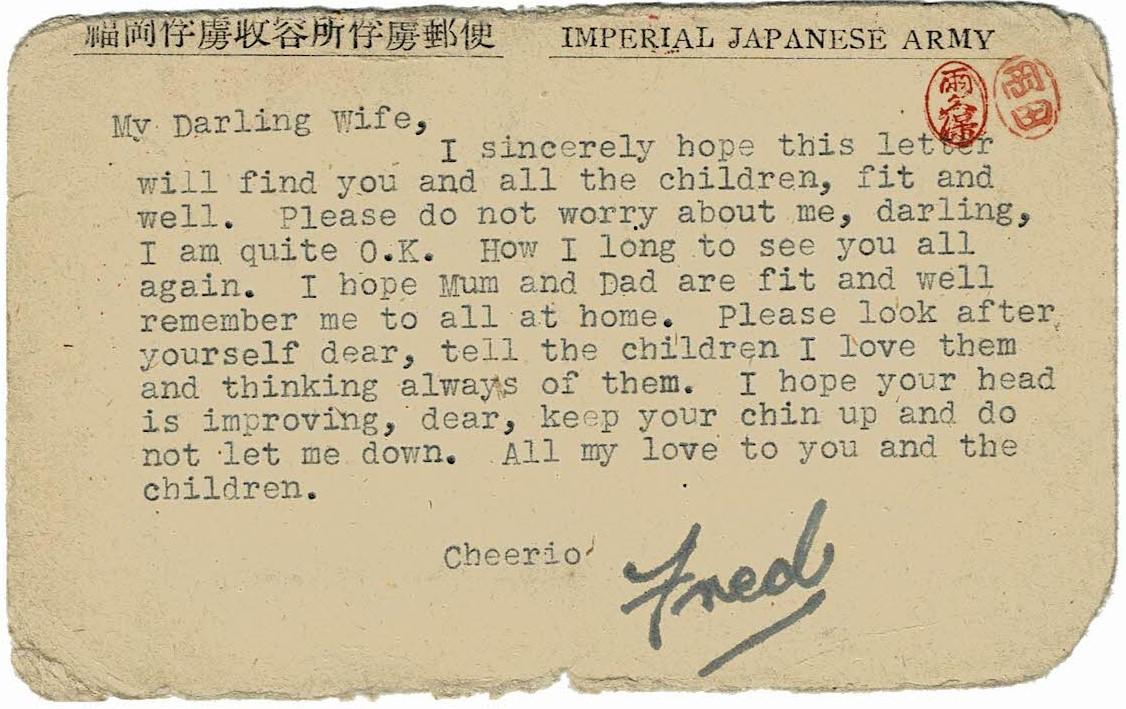 福岡俘虜収容所俘虜郵便 IMPERIAL JAPANESE ARMY
岡田
My Darling Wife,
I sincerely hope this letter
will find you and all the children, fit and
well. Please do not worry about me, darling,
I am quite O.K. How I long to see you all
again. I hope Mum and Dad are fit and well
remember me to all at home. Please look after
yourself dear, tell the children I love them
and thinking always of them. I hope your head
is improving, dear, keep your chin up and do
not let me down. All my love to you and the
children.
Cheerio
Fred